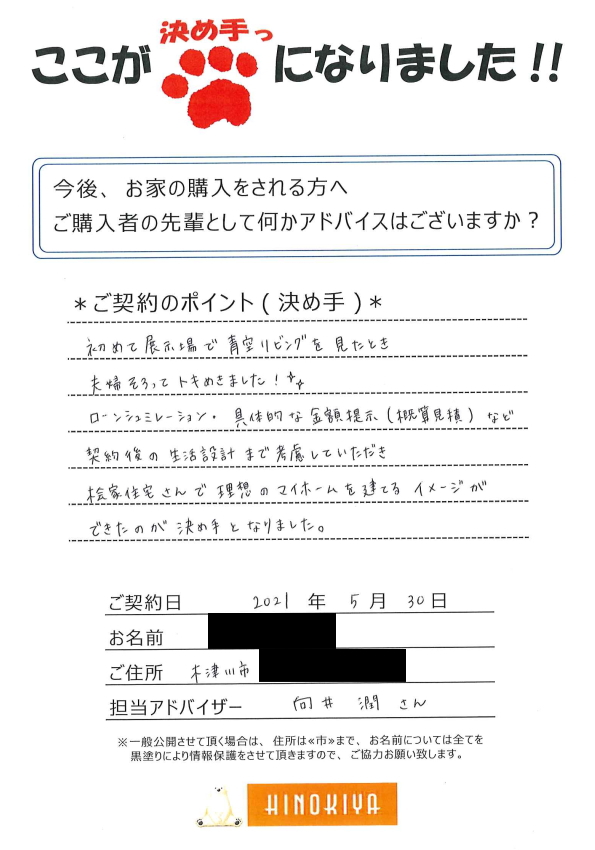 決め手っ
ここが になりました!!
今後、お家の購入をされる方へ
ご購入者の先輩として何かアドバイスはございますか?
*ご契約のポイント(決め手)*
初めて展示場で青空リビングを見たとき
夫婦そろってトキめきました!
ローンシュミレーション・具体的な金額提示(概算見積)など
契約後の生活設計まで考慮していただき
桧家住宅さんで理想のマイホームを建てるイメージが
できたのが決め手となりました。
ご契約日 2021年 5月 30日
お名前
ご住所 木津川市
担当アドバイザー 向井 潤さん
※一般公開させて頂く場合は、住所は≪市≫まで、お名前については全てを
黒塗りにより情報保護をさせて頂きますので、ご協力お願い致します。
HINOKIYA